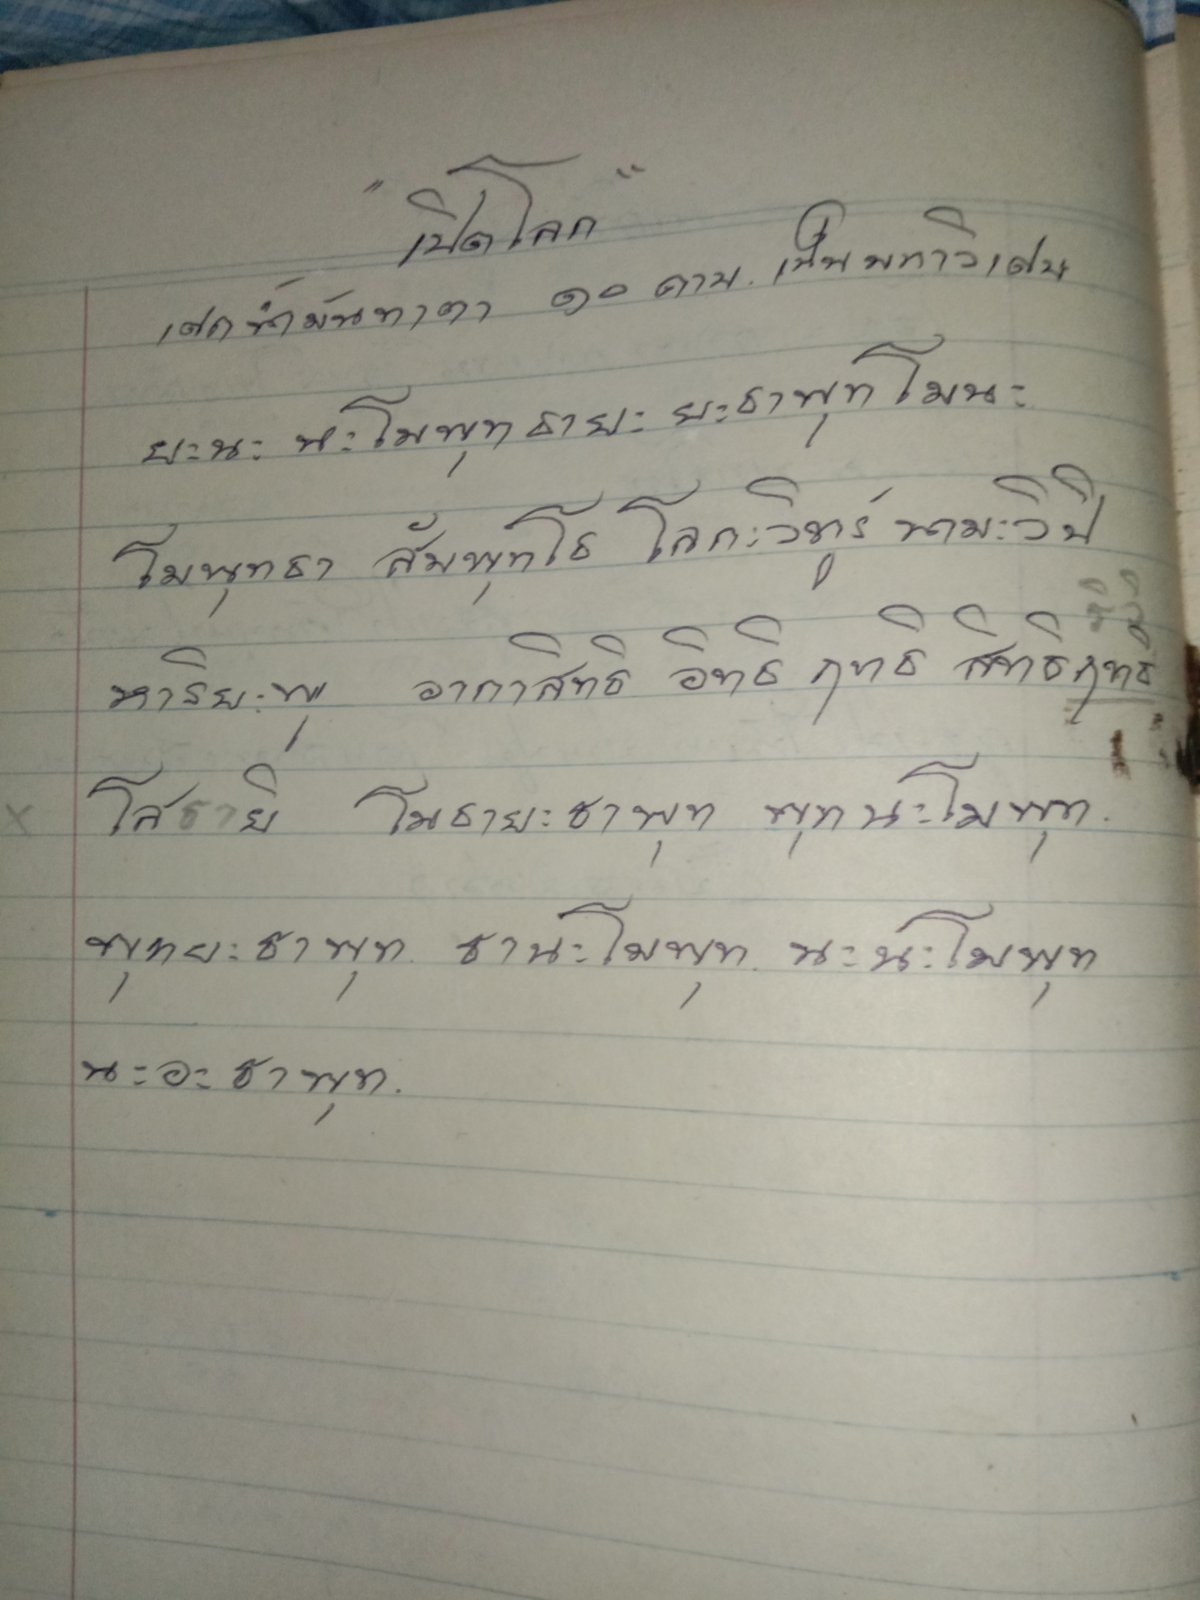 "เปิดโลก"
เสกน้ำมันทาตา ๑๐ คาบ. เป็นมหาวิเศษ
ยะนะ นะโมพุทธายะ ยะธาพุทโมนะ
โมพุทธา สัมพุทโธ โลกะวิทูร์ นามะวิปิ
หาริยะพุ อากาสิทธิ อิทธิ ฤทธิ สิทธิฤทธิ
โสธายิ โมธายะธาพุท พุทนะโมพุท.
พุทยะธาพุท. ธานะโมพุท. นะนะโมพุท
นะอะธาพุท.